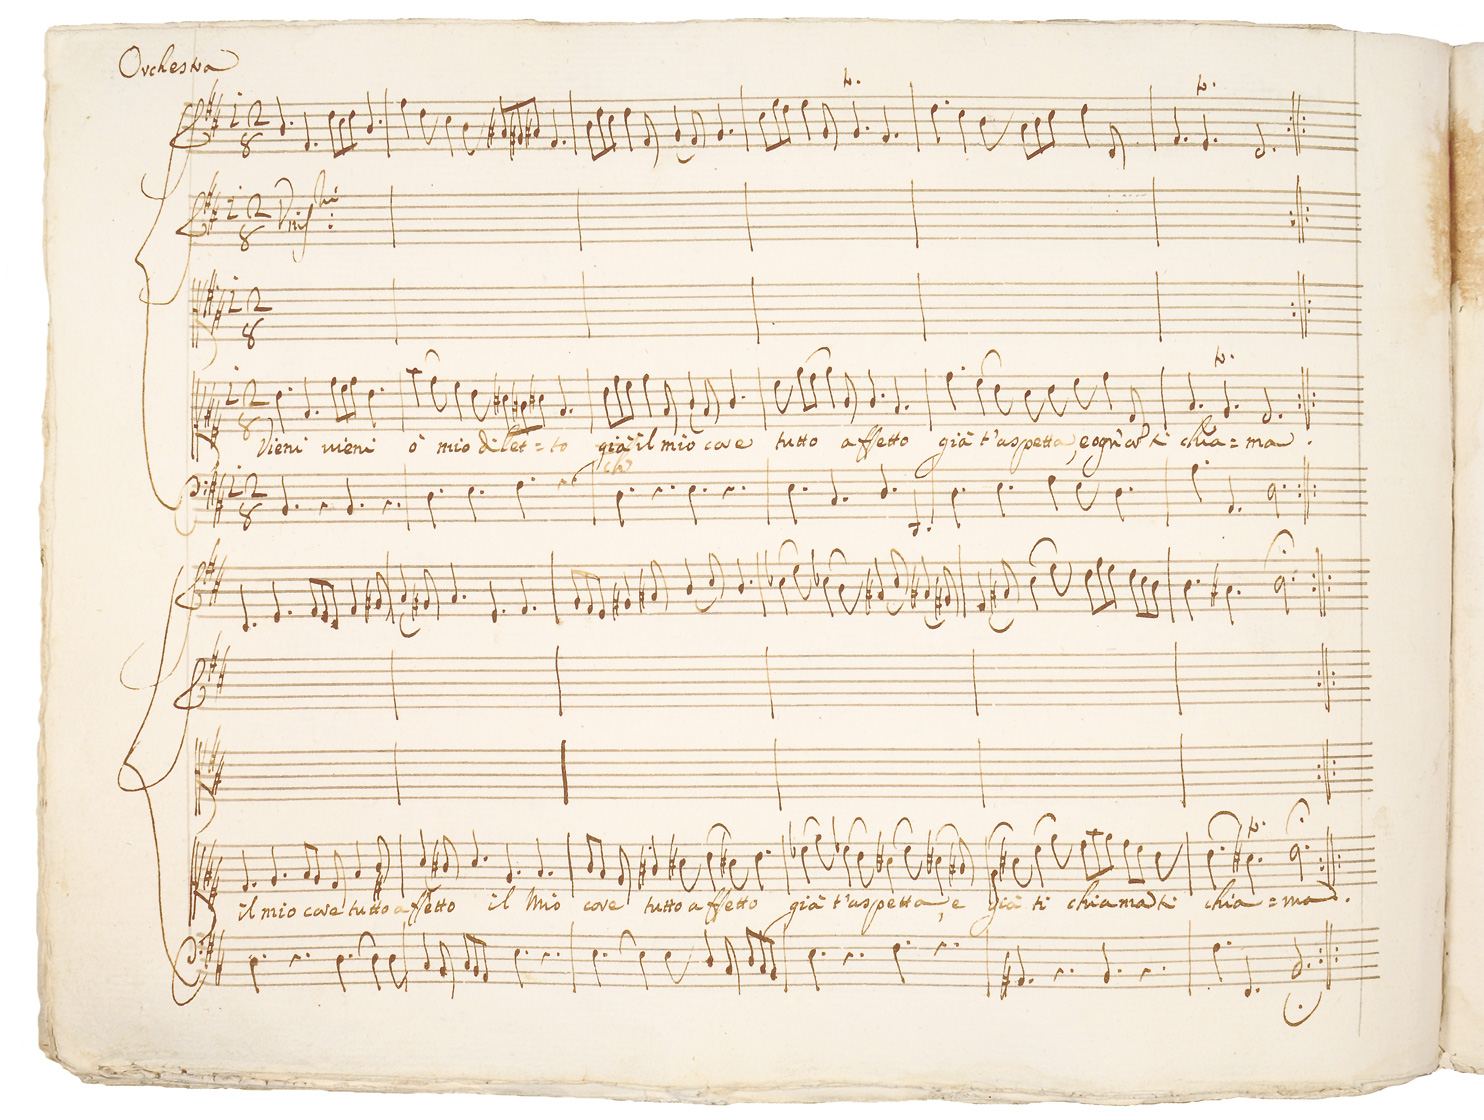 Orchestra
Vieni vieni ò mio dilet = to già il mio core tutto affetto già t'aspetta, e ogn'or ti chia = ma .
il mio core tutto affetto il Mio core tutto affetto già t'aspetta, e già ti chiama ti chia = ma .